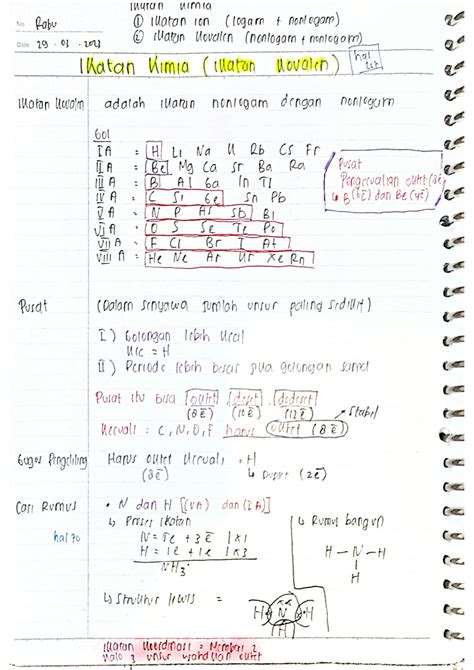 Ikatan Kimia
No. Rabu
① Ikatan ion (logam + nonlogam)
Date 29 . 03 . 2023
② Ikatan Kovalen (nonlogam + nonlogam)
Ikatan Kimia (Ikatan Kovalen)
hal
Ikatan Kovalen adalah ikatan nonlogam dengan nonlogam
Gol
IA = H Li Na K Rb Cs Fr
IIA = Be Mg Ca Sr Ba Ra
IIIA = B Al Ga In Tl
IVA = C Si Ge Sn Pb
VA = N P As Sb Bi
VIA = O S Se Te Po
VIIA = F Cl Br I At
VIIIA = He Ne Ar Kr Xe Rn
Pusat
Pengecualian oktet (8e)
↳ B (6e) dan Be (4e)
Pusat (Dalam senyawa jumlah unsur paling sedikit)
I) Golongan lebih kecil
kec = H
II) Periode lebih besar jika golongan sama
Pusat itu bisa oktet, dekset, dodeset
(8e) (10e) (12e) → Stabil
Kecuali : C, N, O, F harus oktet (8e)
Gugus Pengeliling Harus oktet kecuali = H
(8e) ↳ Duplet (2e)
Cari Rumus • N dan H [(VA) dan (IA)]
hal 70
↳ Proses Ikatan
N = 5e + 3e | x1
H = 1e + 1e | x3
NH3
↳ Rumus bangun
H - N - H
H
↳ Struktur lewis =
H N H
H
Ikatan Koordinasi = Memberi 2